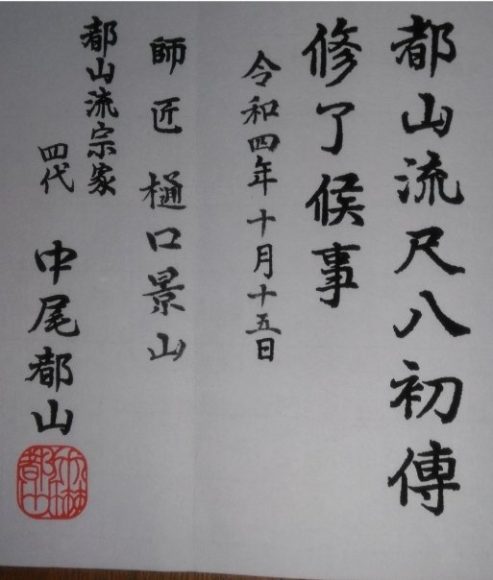 都山流尺八初傳
修了候事
令和四年十月十五日
師匠 樋口景山
都山流宗家
四代 中尾都山